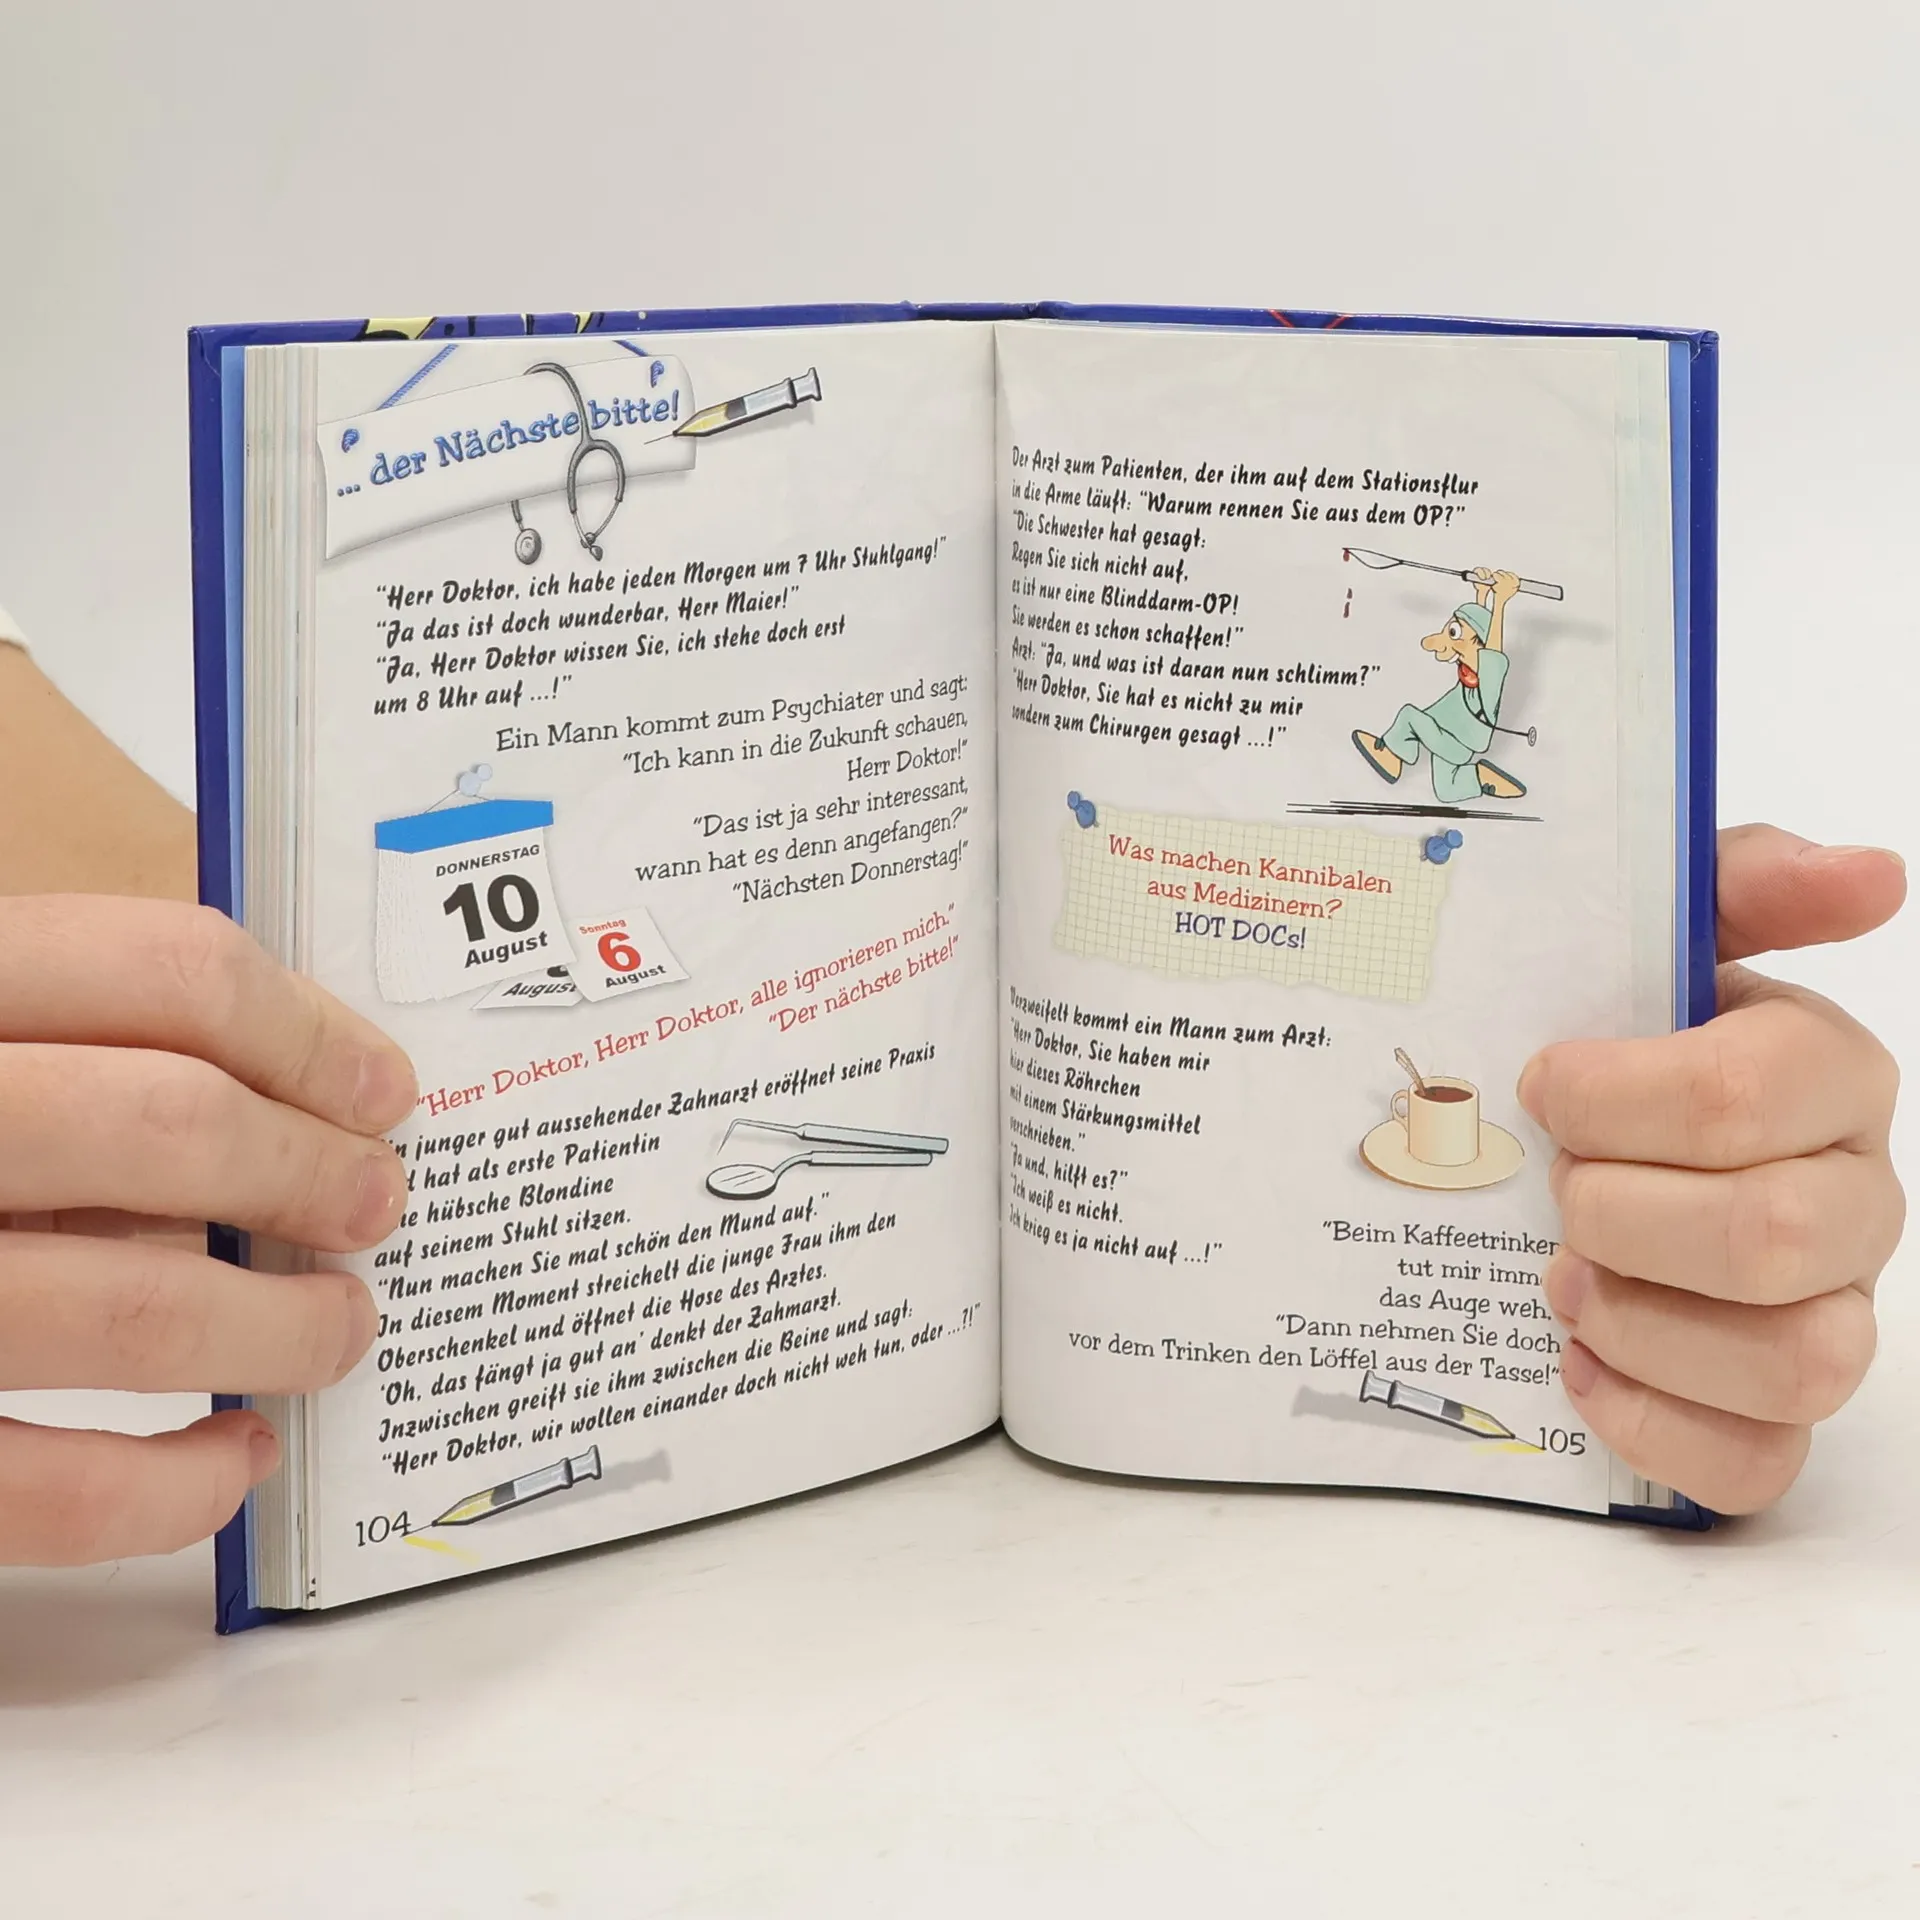 ... der Nächste bitte!
"Herr Doktor, ich habe jeden Morgen um 7 Uhr Stuhlgang!"
"Ja das ist doch wunderbar, Herr Maier!"
"Ja, Herr Doktor wissen Sie, ich stehe doch erst
um 8 Uhr auf ...!"
Ein Mann kommt zum Psychiater und sagt:
"Ich kann in die Zukunft schauen,
Herr Doktor!"
"Das ist ja sehr interessant,
wann hat es denn angefangen?"
"Nächsten Donnerstag!"
DONNERSTAG
10
August
August
Sonntag
6
August
"Herr Doktor, Herr Doktor, alle ignorieren mich."
"Der nächste bitte!"
junger gut aussehender Zahnarzt eröffnet seine Praxis
hat als erste Patientin
hübsche Blondine
auf seinem Stuhl sitzen.
"Nun machen Sie mal schön den Mund auf."
In diesem Moment streichelt die junge Frau ihm den
Oberschenkel und öffnet die Hose des Arztes.
'Oh, das fängt ja gut an' denkt der Zahmarzt.
Inzwischen greift sie ihm zwischen die Beine und sagt:
"Herr Doktor, wir wollen einander doch nicht weh tun, oder ...?!"
104
Der Arzt zum Patienten, der ihm auf dem Stationsflur
in die Arme läuft: "Warum rennen Sie aus dem OP?"
"Die Schwester hat gesagt:
Regen Sie sich nicht auf,
es ist nur eine Blinddarm-OP!
Sie werden es schon schaffen!"
Arzt: "Ja, und was ist daran nun schlimm?"
"Herr Doktor, Sie hat es nicht zu mir
sondern zum Chirurgen gesagt ...!"
Was machen Kannibalen
aus Medizinern?
HOT DOCs!
Verzweifelt kommt ein Mann zum Arzt:
"Herr Doktor, Sie haben mir
hier dieses Röhrchen
mit einem Stärkungsmittel
verschrieben."
"Ja und, hilft es?"
"Ich weiß es nicht.
Ich krieg es ja nicht auf ...!"
"Beim Kaffeetrinken
tut mir
das Auge weh.
"Dann nehmen Sie doch
vor dem Trinken den Löffel aus der Tasse!"
105